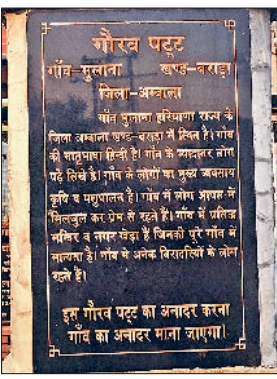 गौरव पट्ट
गाँव-मुलाना खण्ड-बराड़ा
जिला-अम्बाला
गाँव मुलाना हरियाणा राज्य के
जिला अम्बाला खण्ड-बराड़ा में स्थित है। गाँव
की मातृभाषा हिन्दी है। गाँव के ज्यादातर लोग
पढ़े लिखे है। गाँव के लोगों का मुख्य व्यवसाय
कृषि व पशुपालन है। गाँव में लोग आपस में
मिलजुल कर प्रेम से रहते हैं। गाँव में प्रसिद्ध
मन्दिर व नगर खेड़ा हैं जिनकी पूरे गाँव में
मान्यता है। गाँव में अनेक बिरादरियों के लोग
रहते हैं।
इस गौरव पट्ट का अनादर करना
गाँव का अनादर माना जाएगा।